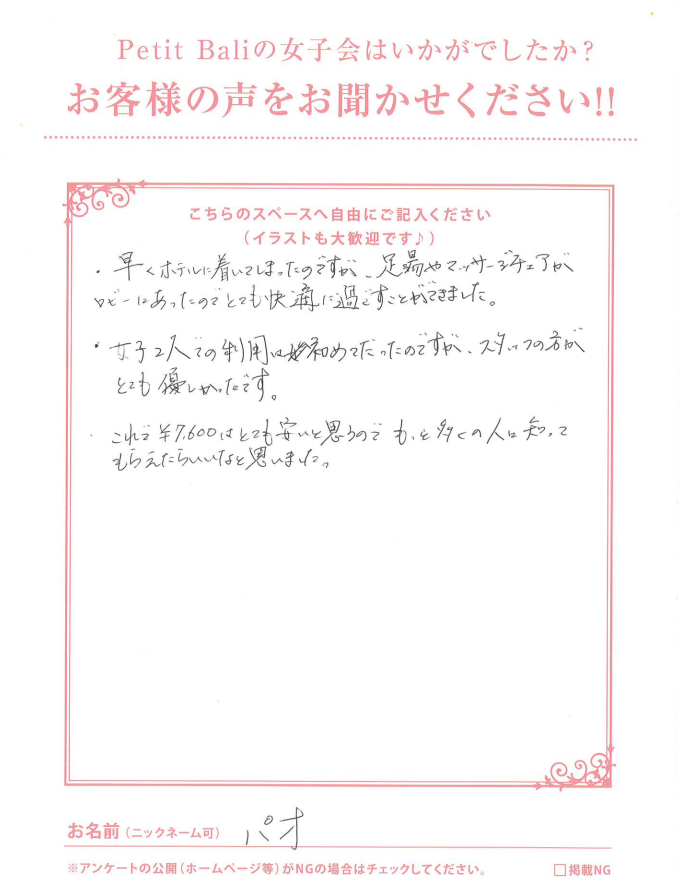 Petit Baliの女子会はいかがでしたか？
お客様の声をお聞かせください!!
こちらのスペースへ自由にご記入ください
（イラストも大歓迎です♪）
・早くホテルに着いてしまったのですが、足湯やマッサージチェアが
ロビーにあったのでとても快適に過ごすことができました。
・女子2人での利用は初めてだったのですが、スタッフの方が
とても優しかったです。
・これで￥7,600はとても安いと思うのでもっと多くの人に知って
もらえたらいいなと思いました。
お名前（ニックネーム可） パオ
※アンケートの公開（ホームページ等）がNGの場合はチェックしてください。 □掲載NG